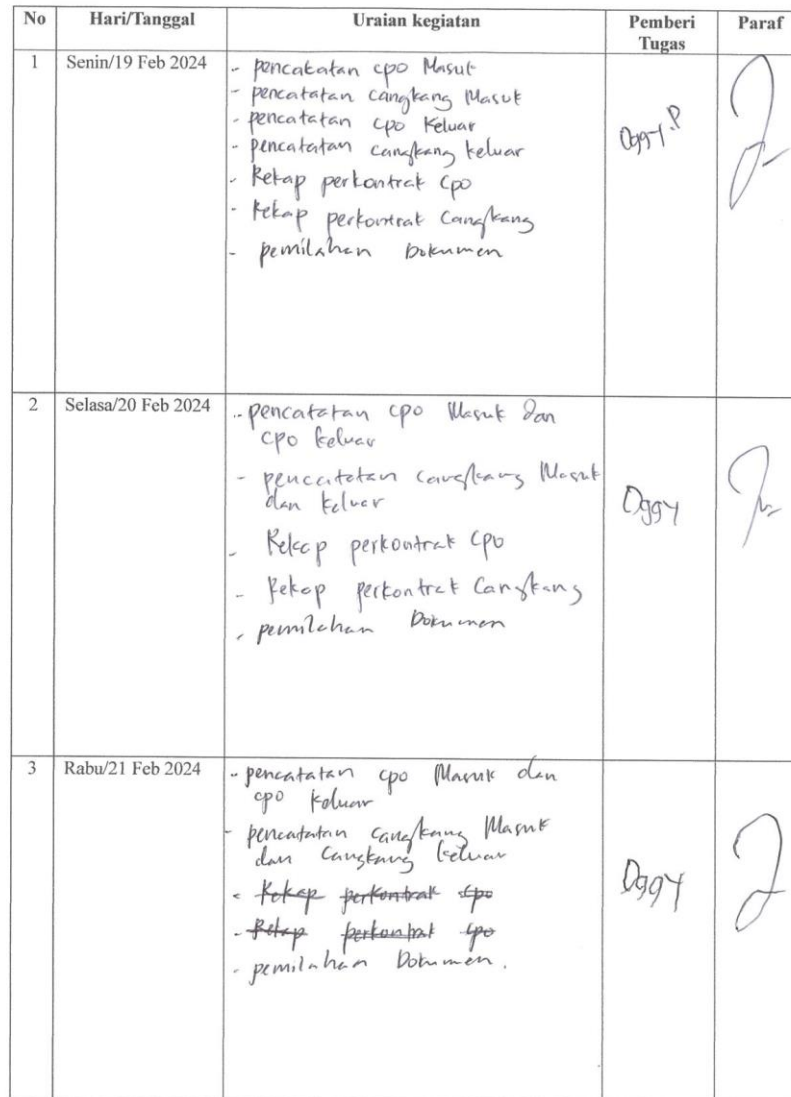 No Hari/Tanggal Uraian kegiatan Pemberi Tugas Paraf
1 Senin/19 Feb 2024
- pencakatan cpo Masuk
- pencatatan cangkang Masuk
- pencatatan cpo keluar
- pencatatan cangkang keluar
- Rekap perkontrak cpo
- Rekap perkontrak Cangkang
- pemilahan Dokumen
Oggy.P
2 Selasa/20 Feb 2024
- pencatatan cpo Masuk dan
cpo keluar
- pencatatan cangkang Masuk
dan keluar
- Rekap perkontrak Cpo
- Rekap perkontrak Cangkang
- pemilahan Dokumen
Oggy
3 Rabu/21 Feb 2024
- pencatatan cpo Masuk dan
cpo keluar
- pencatatan cangkang Masuk
dan Cangkang keluar
- Rekap perkontrak cpo
- Rekap perkontrak cpo
- pemilahan Dokumen.
Oggy